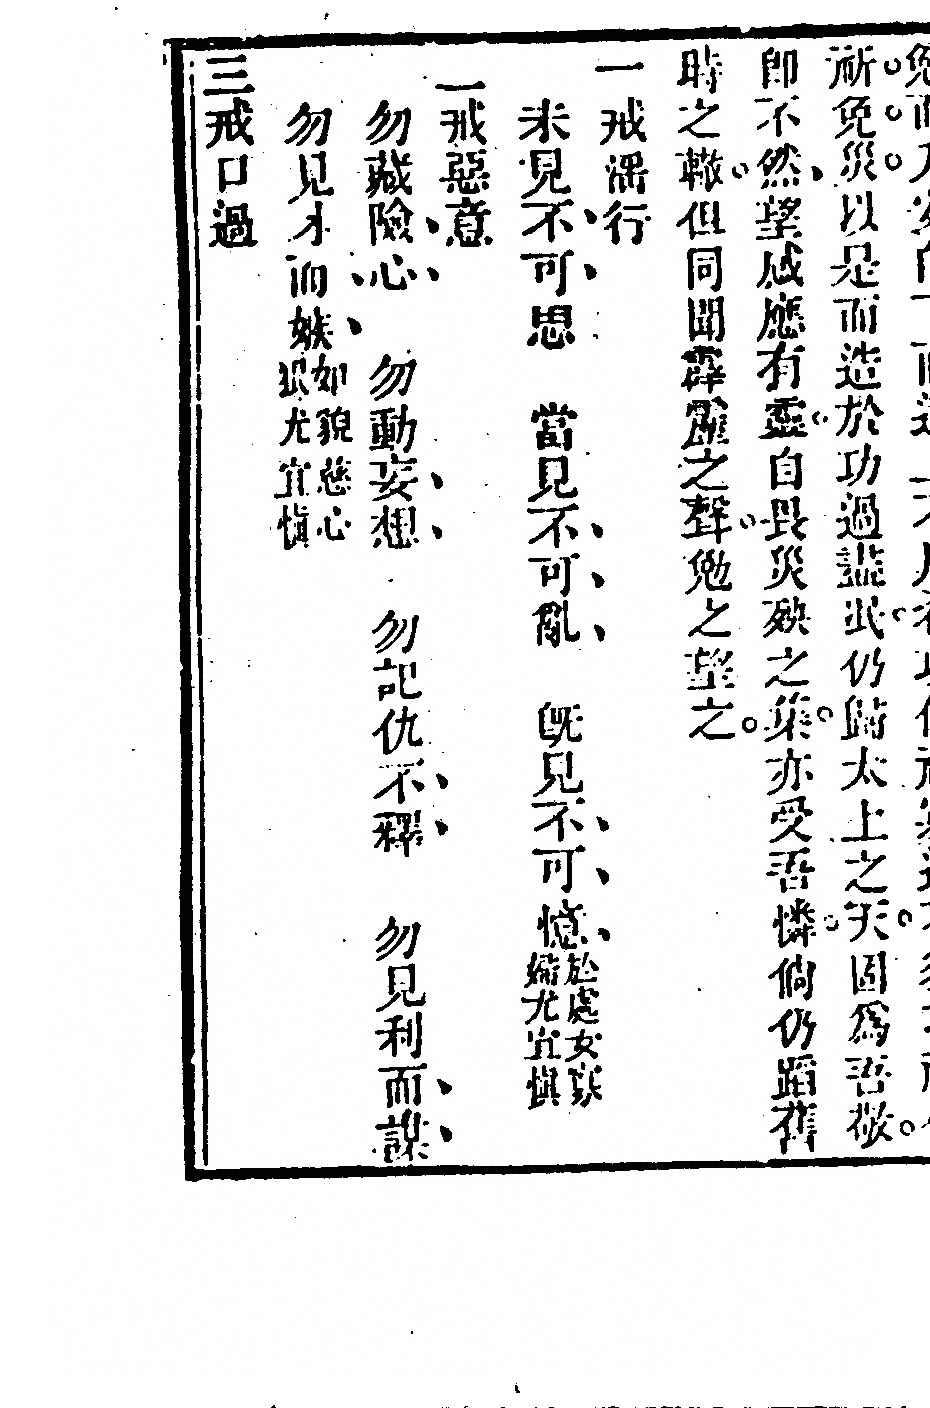 祈免災以是而造於功過盡泯仍歸太上之天固為吾敬
即不然望感應有靈自畏災殃之集亦受吾憐倘仍蹈舊
時之轍但同聞霹靂之聲勉之望之
一戒淫行
未見不可思　當見不可亂　既見不可憶於處女寡
婦尤宜慎
二戒惡意
勿藏險心　勿動妄想　勿記仇不釋　勿見利而謀
勿見才而嫉如貌慈心
狠尤宜慎
三戒口過